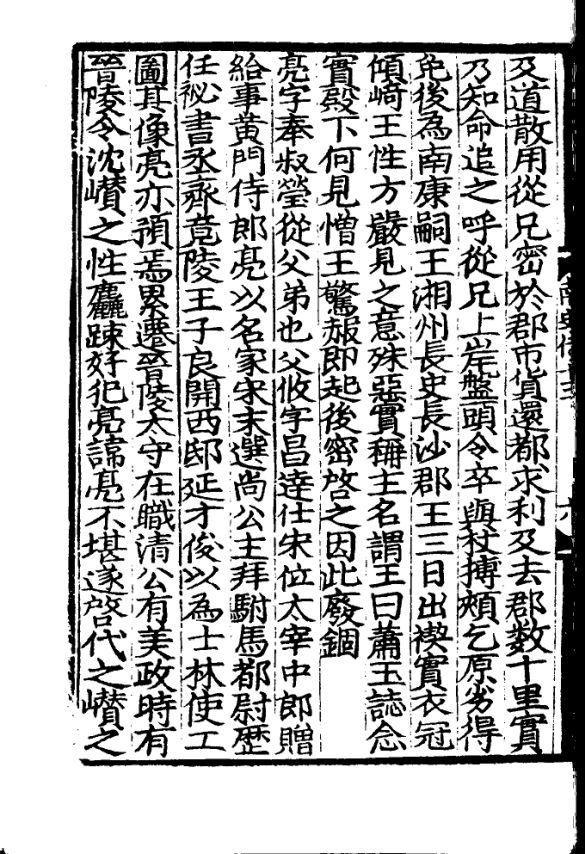 及道散用從兄密於郡市貨還都求利及去郡數十里實
乃知命追之呼從兄上岸盤頭令卒與杖搏頰乞原劣得
免後為南康嗣王湘州長史長沙郡王三日出禊實衣冠
傾崎王性方嚴見之意殊惡實稱主名謂王曰蕭玉誌念
實殿下何見憎王驚赧即起後密啓之因此廢錮
亮字奉叔瑩從父弟也父攸字昌達仕宋位太宰中郎贈
給事黃門侍郎亮以名家宋末選尚公主拜駙馬都尉歷
任祕書丞齊竟陵王子良開西邸延才俊以為士林使工
圖其像亮亦預焉累遷晉陵太守在職清公有美政時有
晉陵令沈巑之性麤踈好犯亮諱亮不堪遂啓代之巑之